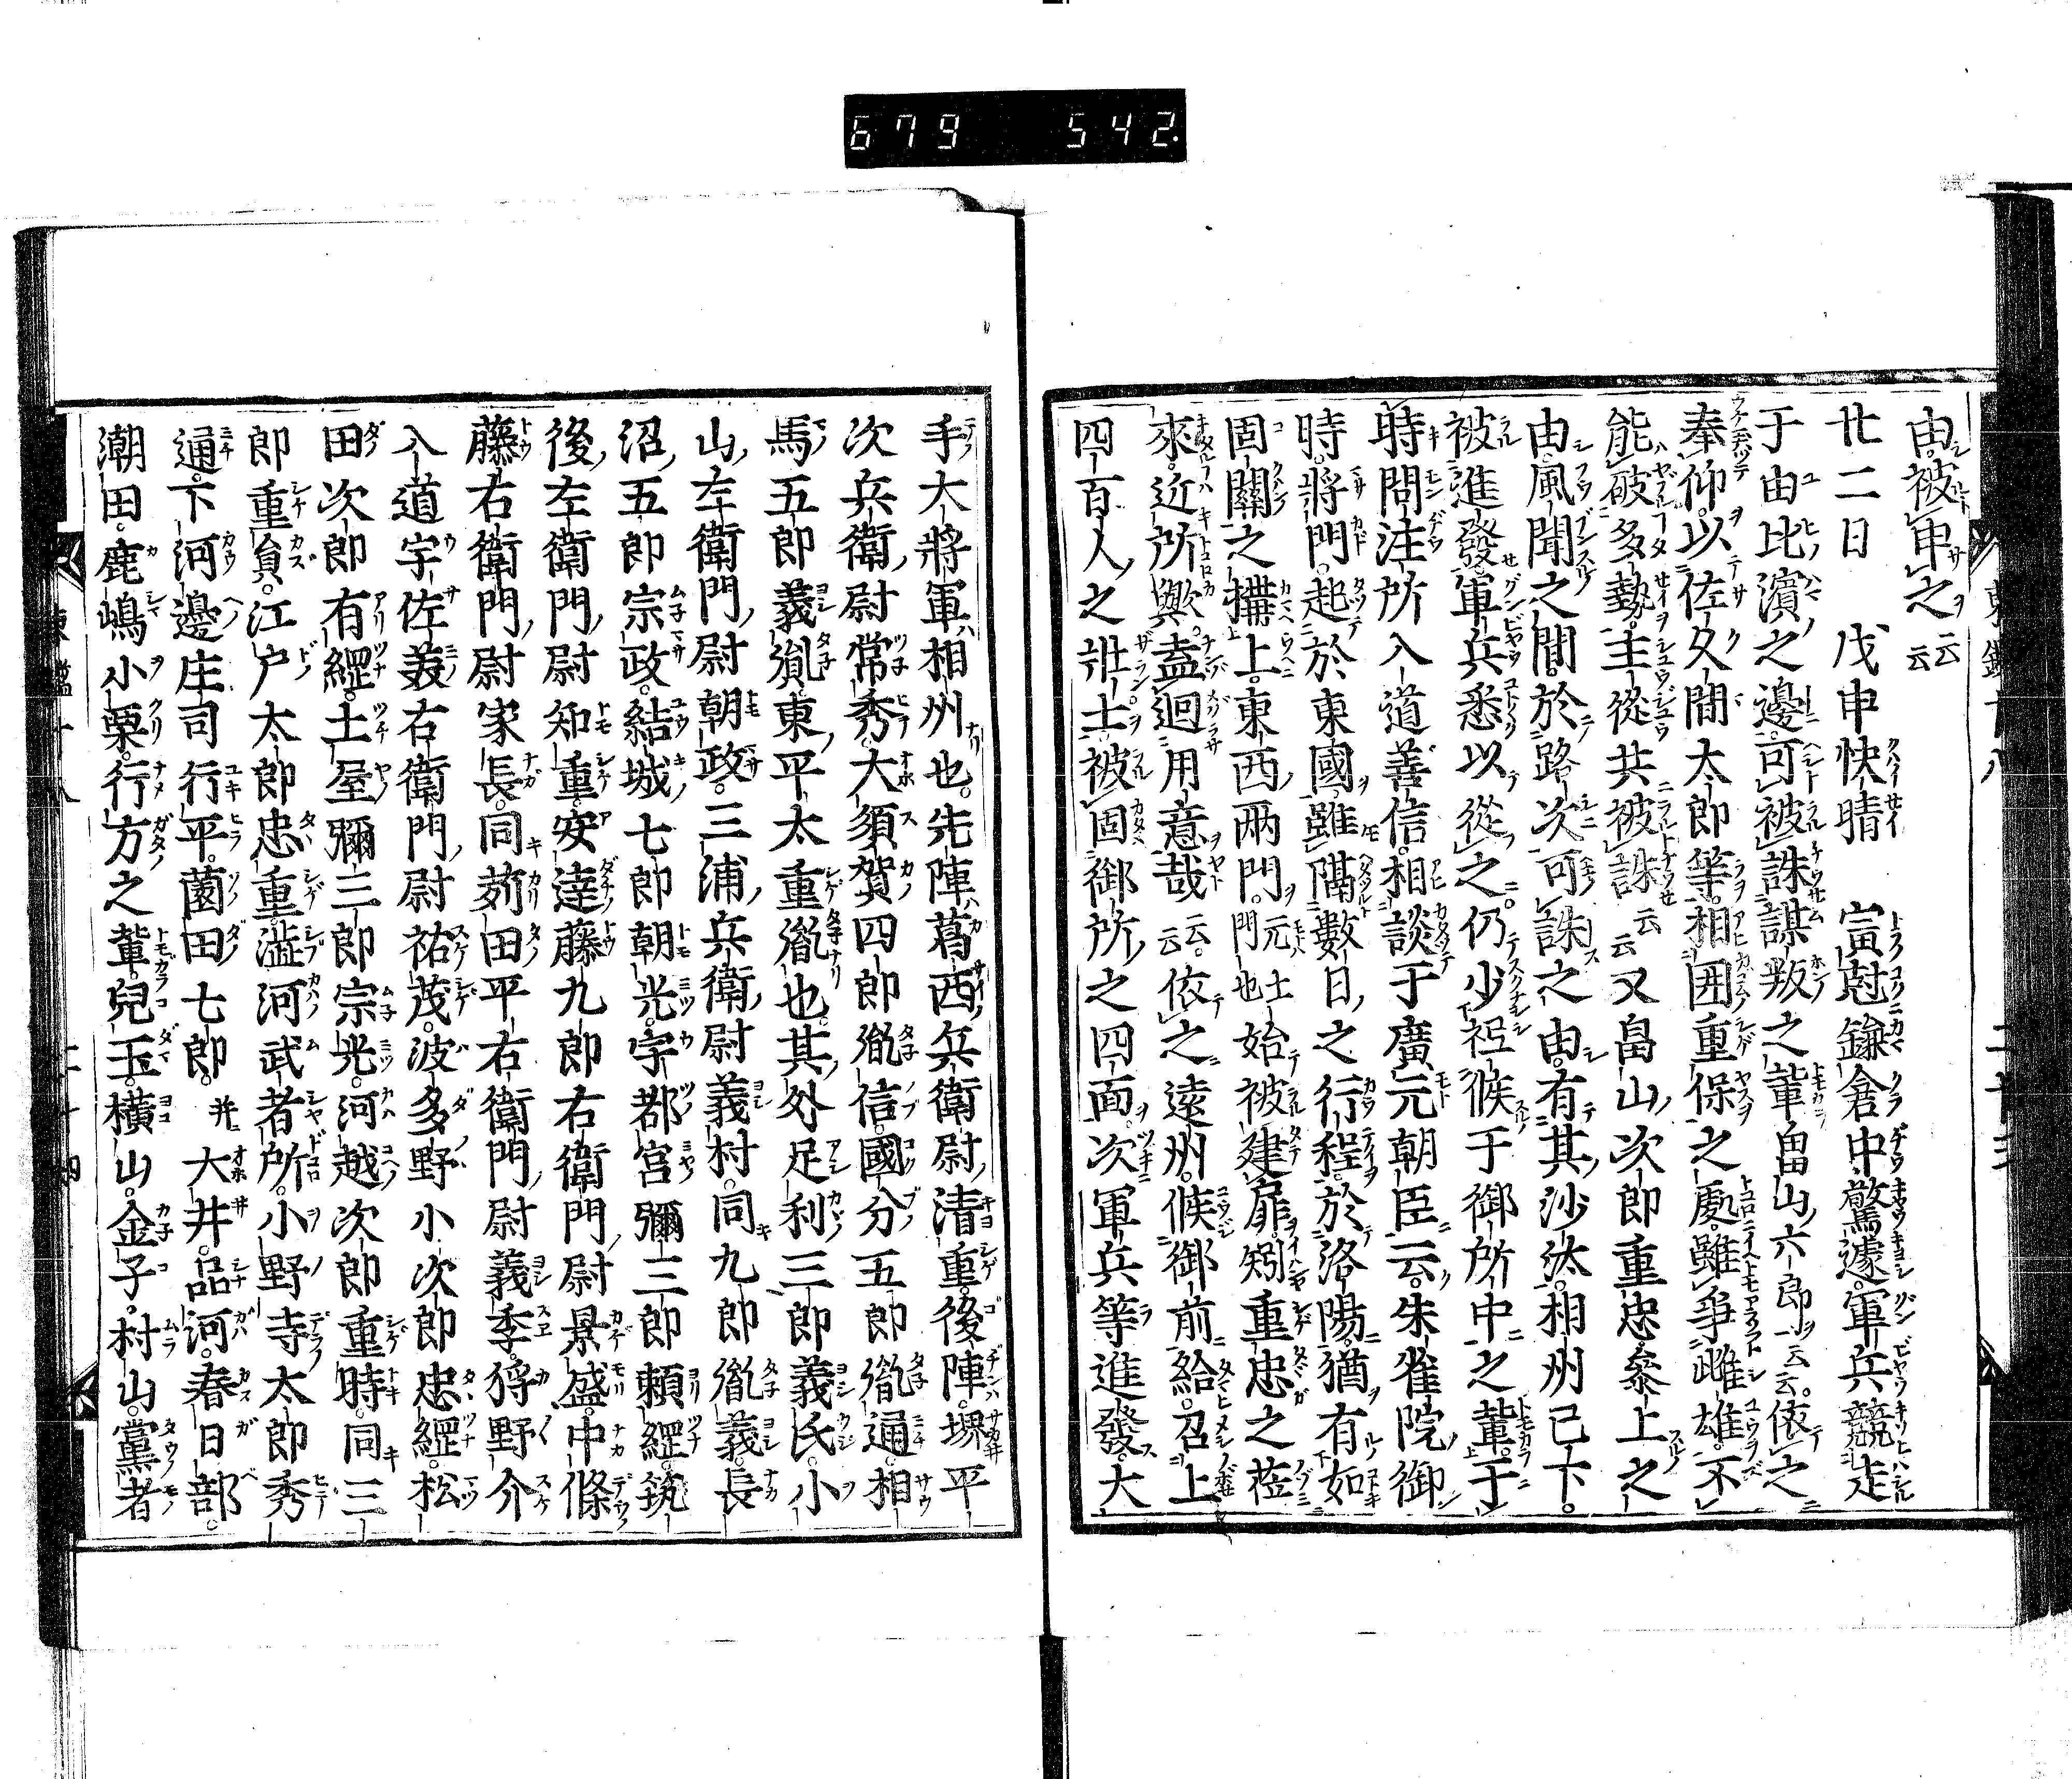 679 542
由。被申之云云
廿二日 戊申快晴 寅尅鎌倉中驚遽。軍兵競走
于由比濱之邊。可被誅謀叛之輩畠山六郎云云。依之
奉仰。以佐久間太郎等。相囲重保之處。雖爭雌雄。不
能破多勢。主從共被誅云云又畠山次郎重忠參上之
由。風聞之間。於路次可誅之由。有其沙汰。相州已下。
被進發。軍兵悉以從之。仍少祗候于御所中之輩。于
時問注所入道善信。相談于廣元朝臣云。朱雀院御
時。將門起於東國。雖隔數日之行程。於洛陽。猶有如
固關之搆。上東西兩門。元土門也始被建扉。矧重忠之莅
來。近所歟。盍廻用意哉云云。依之遠州。候御前給。召上
四百人之壯士。被固御所之四面。次軍兵等進發。大
手大將軍相州也。先陣葛西兵衛尉清重。後陣堺平
次兵衛尉常秀。大須賀四郎胤信。國分五郎胤通。相
馬五郎義胤。東平太重胤也。其外足利三郎義氏。小
山左衛門尉朝政。三浦兵衛尉義村。同九郎胤義。長
沼五郎宗政。結城七郎朝光。宇都宮彌三郎頼綱。筑
後左衛門尉知重。安達藤九郎右衛門尉景盛。中條
藤右衛門尉家長。同苅田平右衛門尉義季。狩野介
入道宇佐美右衛門尉祐茂。波多野小次郎忠綱。松
田次郎有綱。土屋彌三郎宗光。河越次郎重時。同三
郎重員。江戸太郎忠重。澁河武者所。小野寺太郎秀
通。下河邊庄司行平。薗田七郎。并大井。品河。春日部。
潮田。鹿嶋。小栗。行方之輩。兒玉。横山。金子。村山。黨者